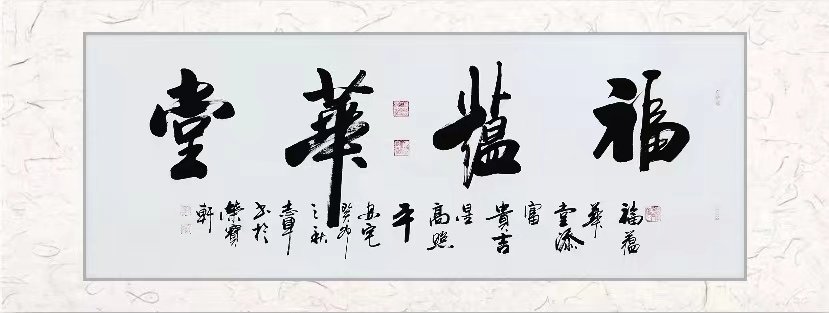 福蘊華堂
福蘊
華
堂添
富
貴吉
星
高照
平
安宅
癸卯
之秋
书於
榮寶
軒